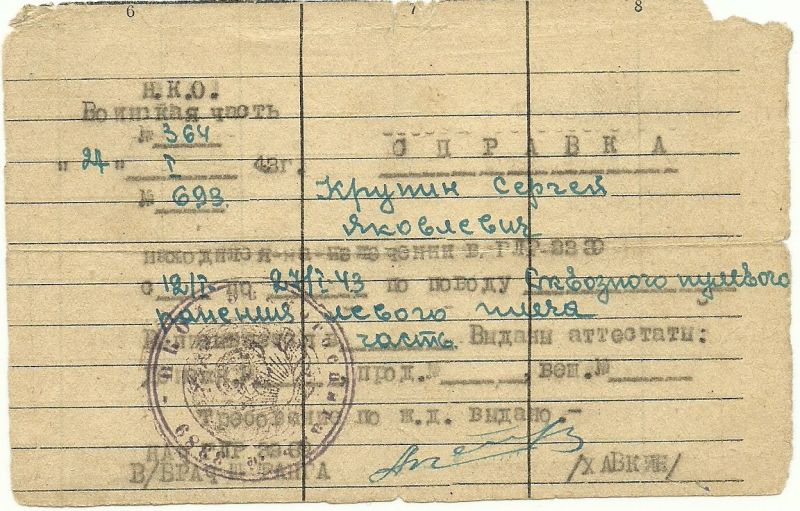 6 7 8
Н.К.О.
Воинская часть
№ 364
"27" I 43г.
№ 693.
СПРАВКА
Крупин Сергей
Яковлевич
находился на излечении в ГЛР
с 12/I по 27/I-43 по поводу Сквозного пулевого
ранения левого плеча
часть. Выданы аттестаты:
прод.№ , вещ.№
Требование по ж.д. выдано.-
ГЛР
В/ВРАЧ РАНГА /ХАВКИН/